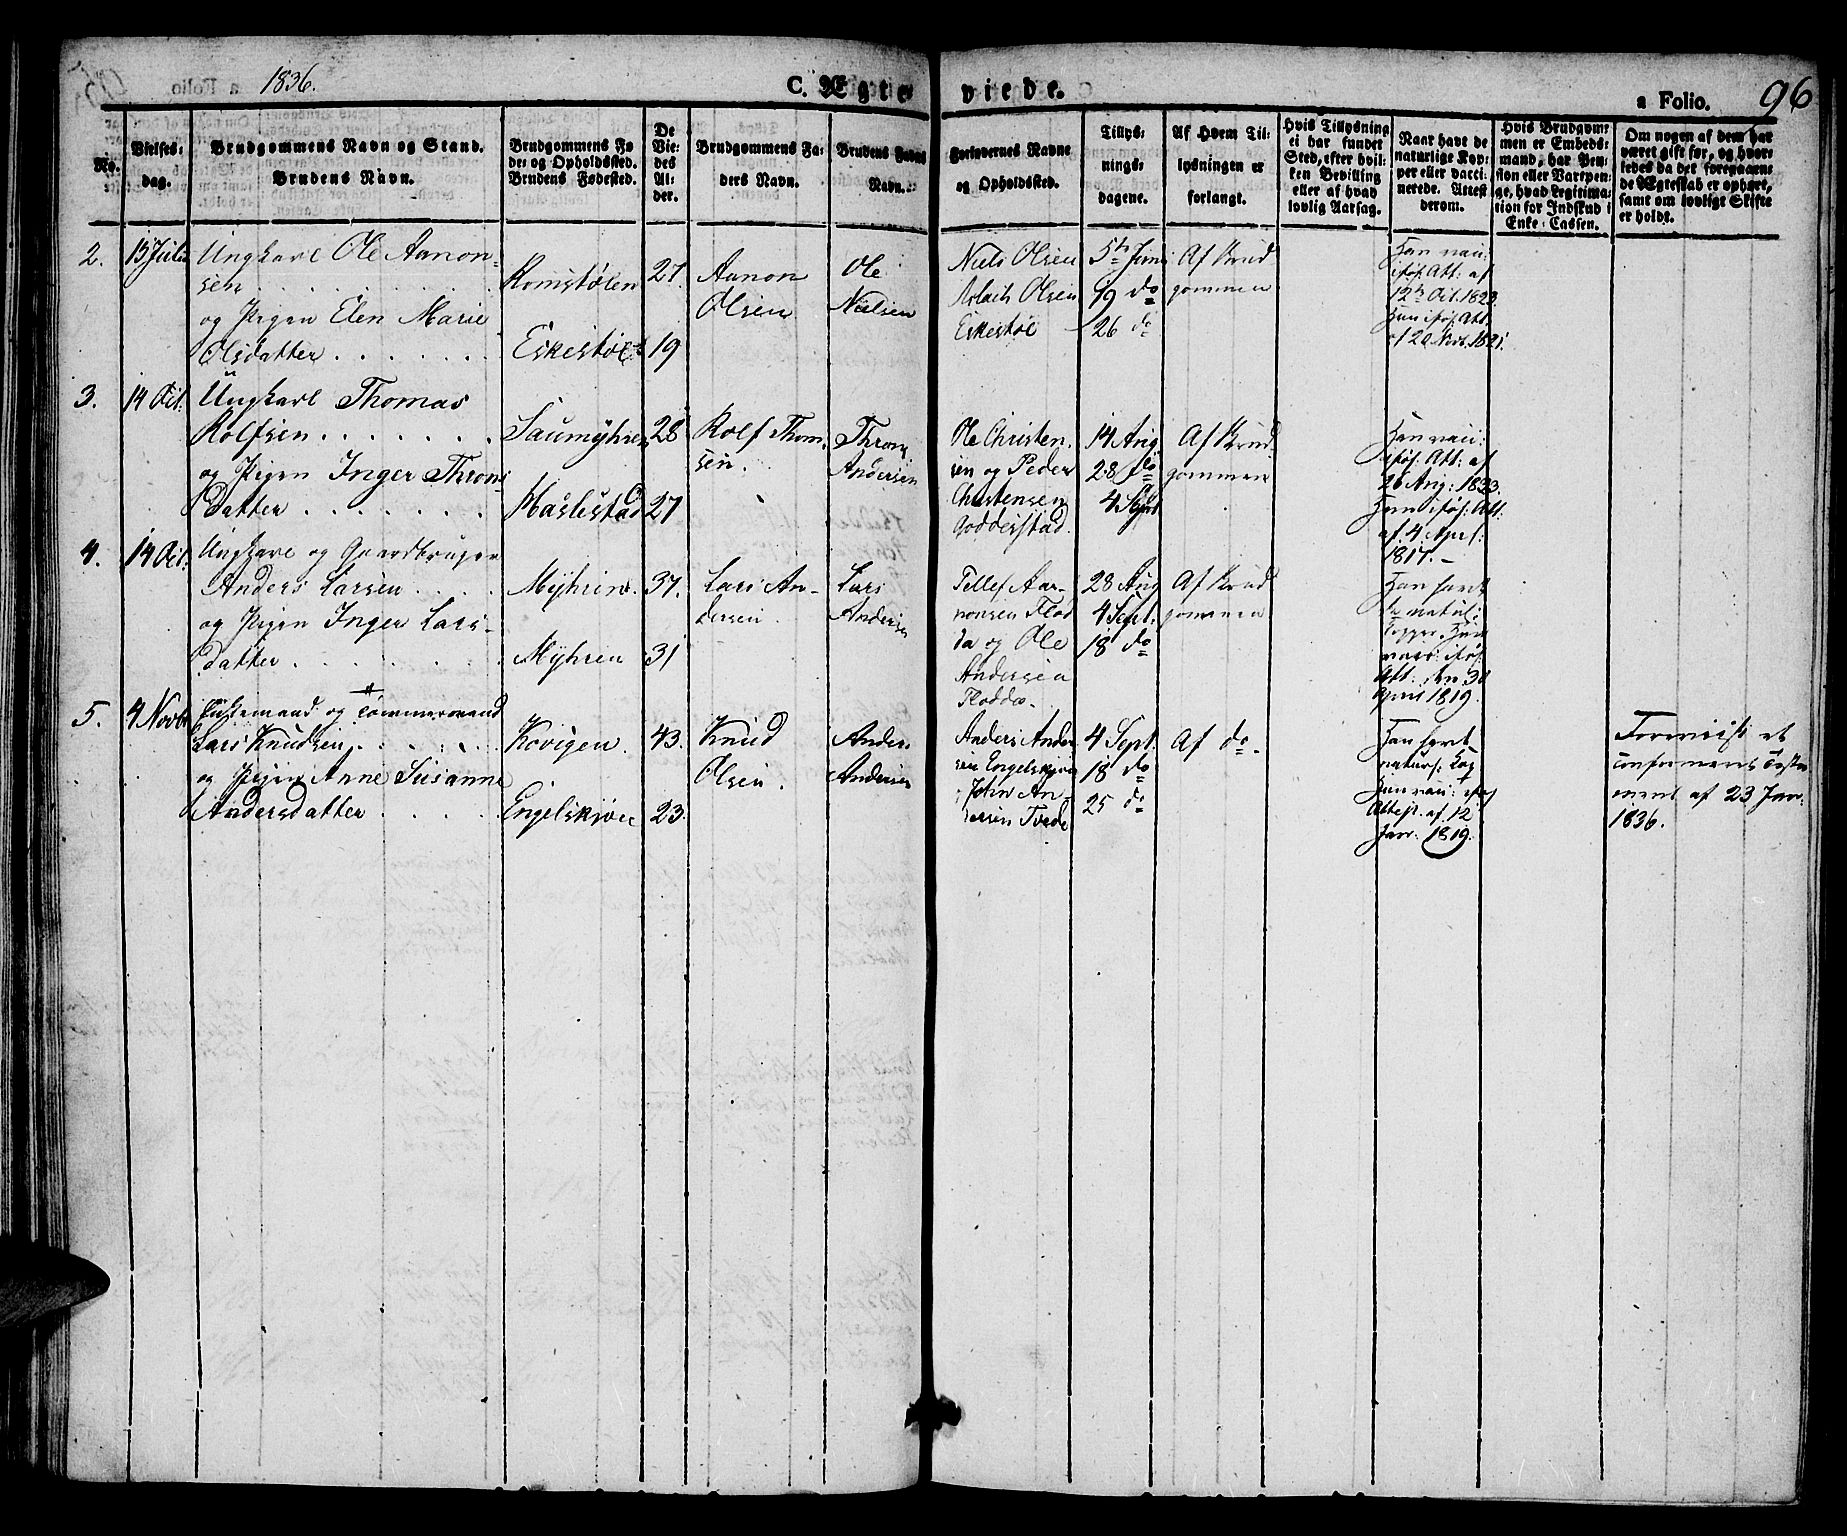 1836.
C. Ægteviede.
a Folio. 96
No.
Vielses-
dag.
Brudgommens Navn og Stand.
Brudens Navn.
Brudgommens Fø-
de- og Opholdssted.
Brudens Fødested.
De
Vie-
des
Al-
der.
Brudgommens Fa-
ders Navn.
Brudens Faders
Navn.
Forlovernes Navne
og Opholdssted.
Tillys-
nings-
dagene.
Af Hvem Til-
lysningen er
forlangt.
Hvis Tillysning
ei har fundet
Sted, efter hvil-
ken Bevilling
eller af hvad
lovlig Aarsag.
Naar havt de
naturlige Kop-
per eller vacci-
nerede. Attest
derom.
Hvis Brudgom-
men er Embeds-
mand, har Pen-
sion eller Vartpen-
ge, hvad Legitima-
tion for Indskud i
Enke-Cassen.
Om nogen af dem har
været gift før, og hvor-
ledes da det foregaaen-
de Ægteskab er ophørt,
samt om lovligt Skifte
er holdt.
2. 15 Juli
Ungkarl Ole Aanon-
sen
og Pigen Elen Marie
Olsdatter
Romstølen
Eskestøl
27.
19
Aanon
Olsen
Ole
Nielsen
Niels Olsen
Aslach Olsen
Eskestøl
5te Juni
19 do
26 do
Af Brud
gommen
Han vac:
iføl: Att: af
12te Oct. 1823.
Hun iføl: Att:
af 20 Novb. 1821.
3. 14 Oct:
Ungkarl Thomas
Rolfsen
og Pigen Inger Thron-
datter
Saumyhren
Haslestad
28
27
Rolf Thom-
sen.
Thron
Andersen
Ole Christen-
sen og Peder
Christensen
Godderstad.
14 Aug
28 do
4 Sept
Af Brud
gommen
Han vac:
iføl: Att: af
26 Aug: 1833.
Hun iføl: Att:
af 4 April:
1817.
4. 14 Oct:
Ungkarl og Gaardbruger
Anders Larsen
og Pigen Inger Lars-
datter
Myhren.
Myhren
37.
31
Lars An-
dersen.
Lars
Andersen
Tellef Aa-
nonsen Flod
da og Ole
Andersen
Flodda.
28 Aug
4 Sept:
18 do
Af Brud
gommen
Han havt
de naturl:
Kopper. Hun
vacc: iføl:
Att: den 30
April 1819.
5. 4 Novbr
Enkemand og Tømmermand
Lars Knudsen
og Pigen Anne Susanne
Andersdatter
Kovigen.
Engelskjøn
43.
23.
Knud
Olsen.
Anders
Andersen
Anders Ander
sen Engelskjøn
John An-
dersen Tvede
4 Sept.
18 do
25 do
Af do
Han havt
naturl: Kop
Hun vac: iføl
Attest. af 12
Jan: 1819.
Foreviist et
Conformens Testa
ment af 23 Jan:
1836.